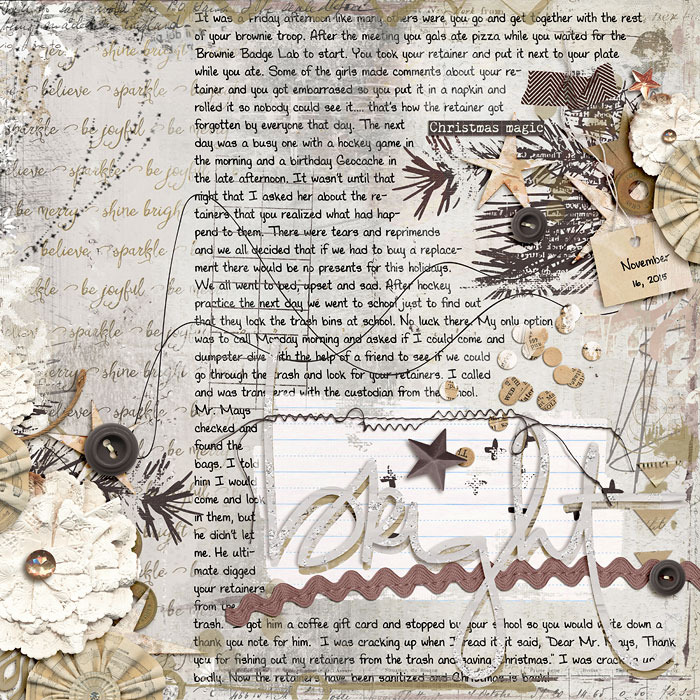 It was a Friday afternoon like many others were you go and get together with the rest
of your brownie troop. After the meeting you gals ate pizza while you waited for the
Brownie Badge Lab to start. You took your retainer and put it next to your plate
while you ate. Some of the girls made comments about your re-
tainer and you got embarrased so you put it in a napkin and
rolled it so nobody could see it.... that's how the retainer got
forgotten by everyone that day. The next
day was a busy one with a hockey game in
the morning and a birthday Geocache in
the late afternoon. It wasn't until that
night that I asked her about the re-
tainers that you realized what had hap-
pend to them. There were tears and reprimends
and we all decided that if we had to buy a replace-
ment there would be no presents for this holidays.
We all went to bed, upset and sad. After hockey
practice the next day we went to school just to find out
that they lock the trash bins at school. No luck there. My only option
was to call Monday morning and asked if I could come and
dumpster dive with the help of a friend to see if we could
go through the trash and look for your retainers. I called
and was transfered with the custodian from the school.
Mr. Mays
checked and
found the
bags. I told
him I would
come and look
in them, but
he didn't let
me. He ulti-
mate digged
your retainers
from the
trash. I got him a coffee gift card and stopped by your school so you would write down a
thank you note for him. I was cracking up when I read it, it said, "Dear Mr. Mays, Thank
you for fishing out my retainers from the trash and saving Christmas." I was cracking up
badly. Now the retainers have been sanitized and Christmas is back!
Christmas magic
November
16, 2015
bright
shine bright
believe ~ sparkle ~ be merry
sparkle ~ be joyful ~ be
be merry ~ shine bright
believe ~ sparkle
be joyful ~ be